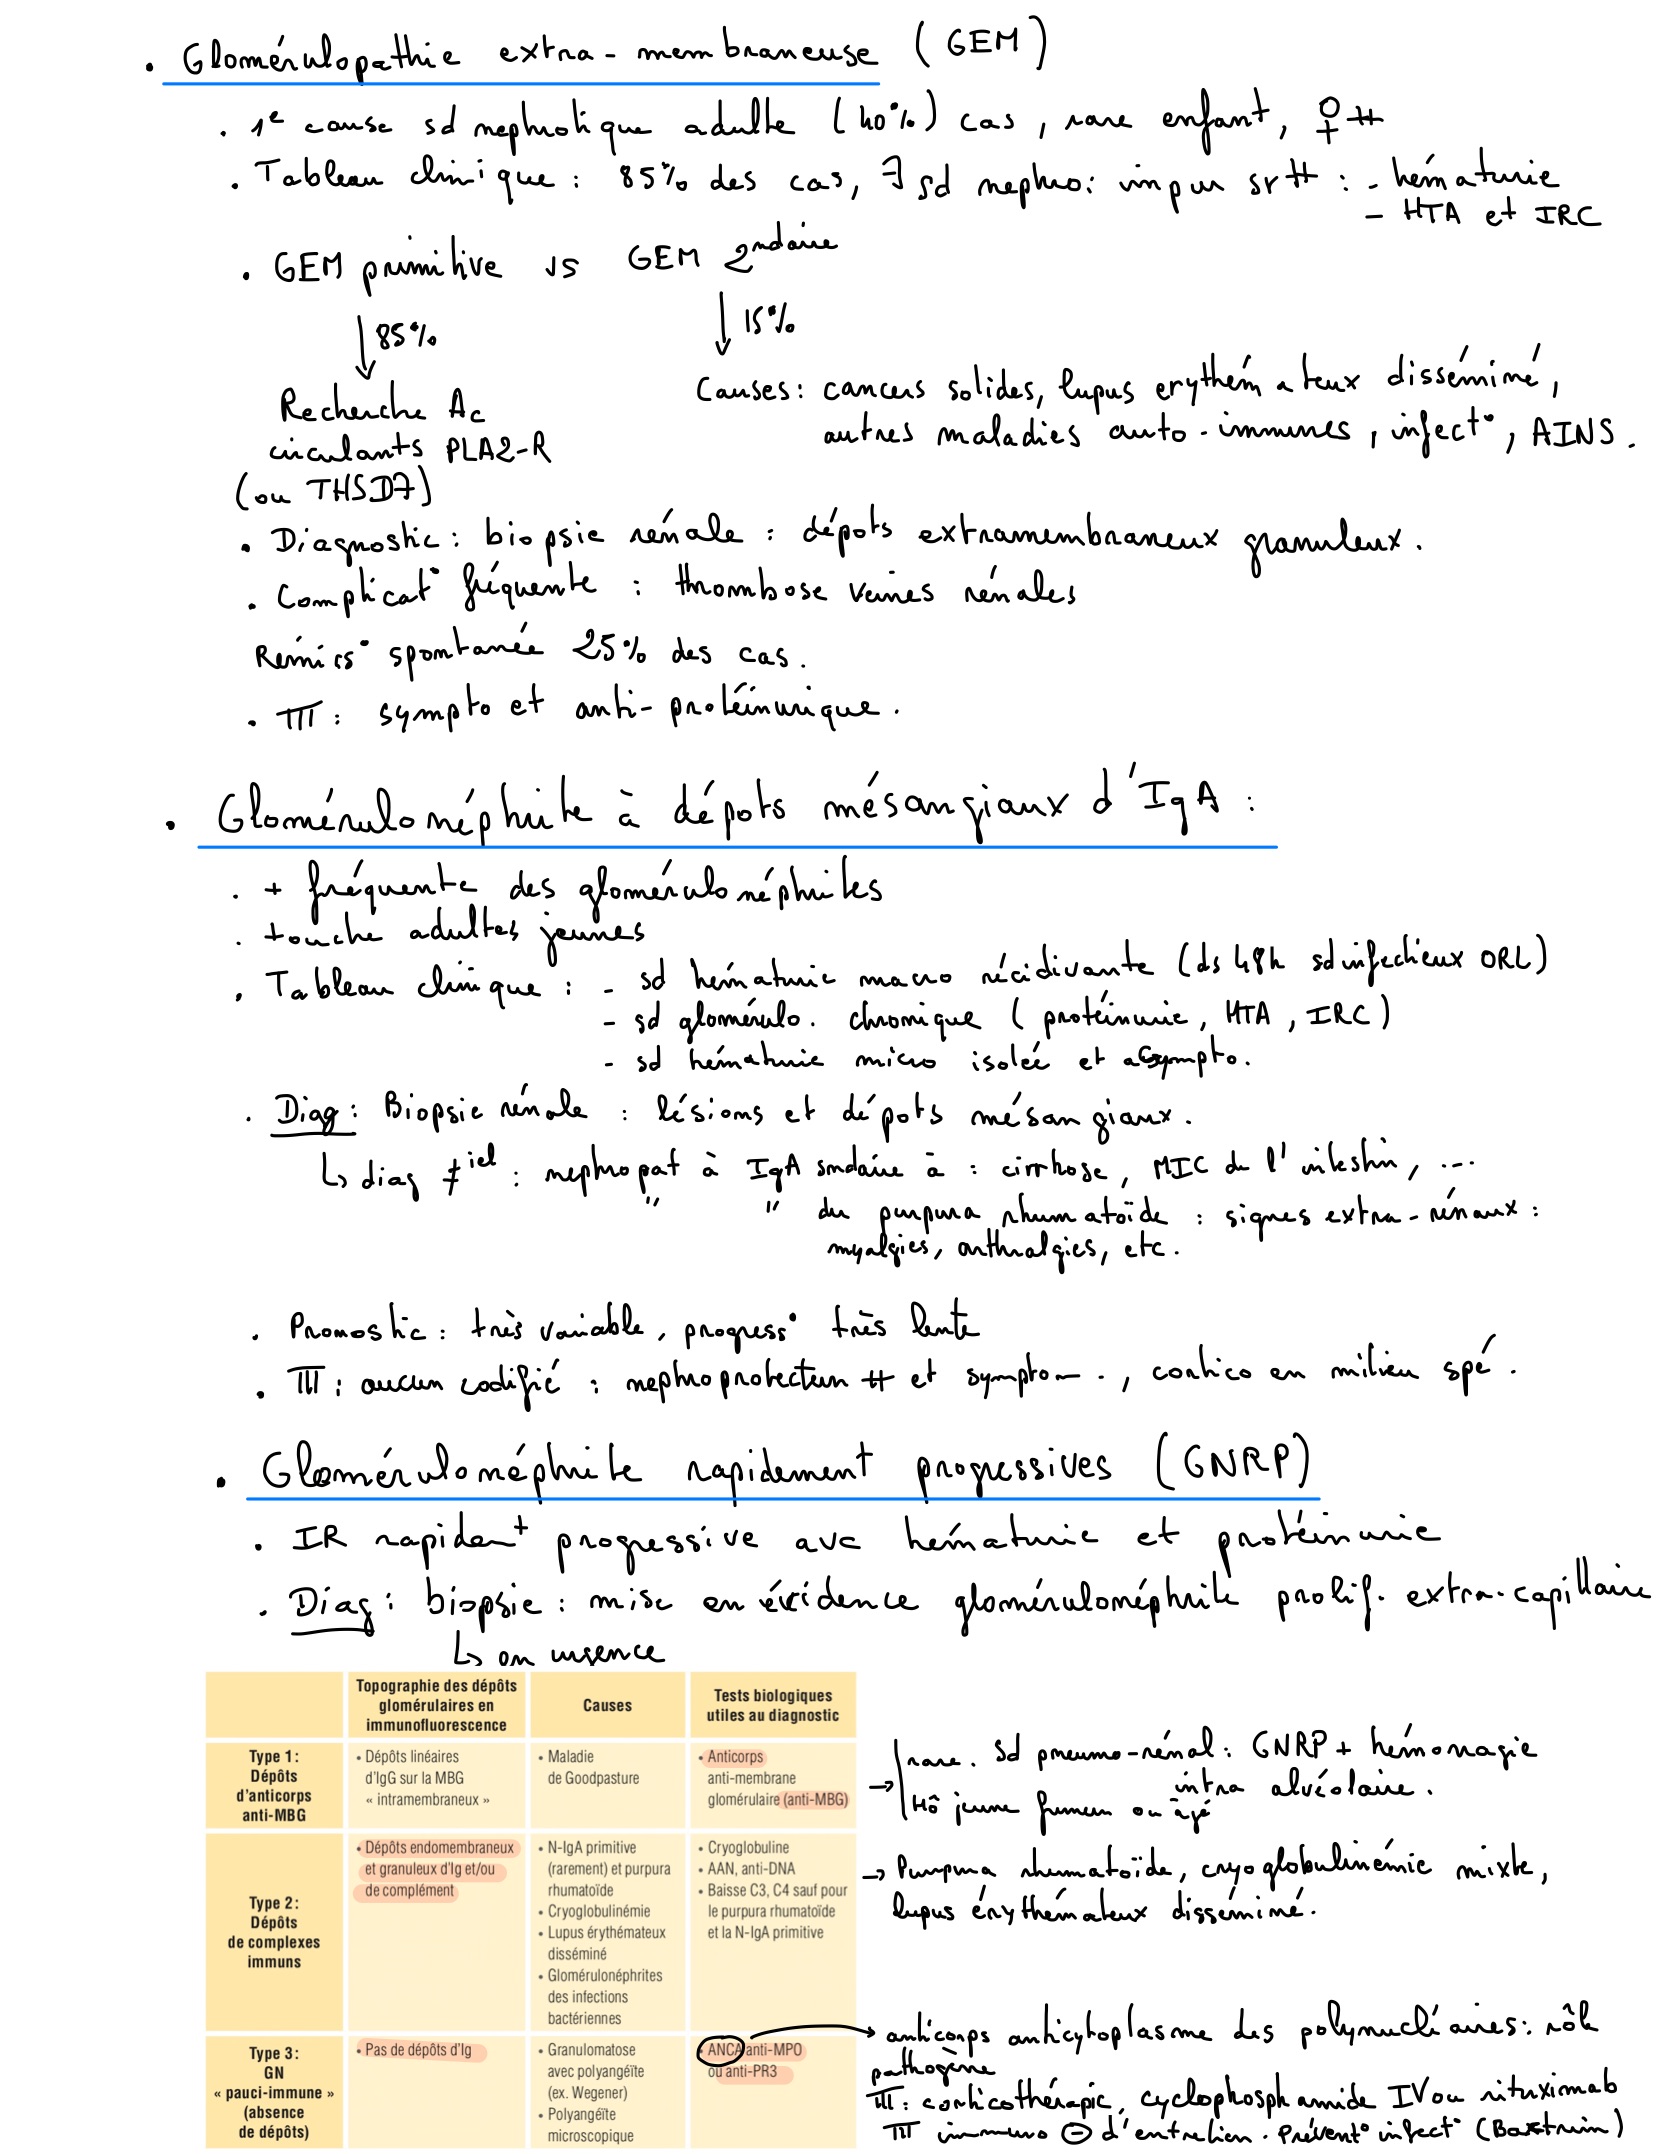 . Glomérulopathie extra-membraneuse (GEM)
. 1e cause sd nephrotique adulte (40%) cas, rare enfant, ♀ #
. Tableau clinique : 85% des cas, ∃ sd nephro: impur srt# : - hématurie
- HTA et IRC
. GEM primitive vs GEM 2ndaire
↓ 85% ↓ 15%
Causes : cancers solides, lupus erythémateux disséminé,
autres maladies auto-immunes, infect°, AINS.
Recherche Ac
circulants PLA2-R
(ou THSD7)
. Diagnostic : biopsie rénale : dépots extramembraneux granuleux.
. Complicat° fréquente : thrombose veines rénales
Rémiss° spontanée 25% des cas.
. TTT : sympto et anti-protéinurique.
. Glomérulonéphrite à dépots mésangiaux d'IgA :
. + fréquente des glomérulonéphrites
. touche adultes jeunes
. Tableau clinique : - sd hématurie macro récidivante (ds 48h sd infectieux ORL)
- sd glomérulo. chronique (protéinurie, HTA, IRC)
- sd hématurie micro isolée et asympto.
. Diag : Biopsie rénale : lésions et dépots mésangiaux.
↳ diag ≠iel : nephropat à IgA sndaire à : cirrhose, MIC de l'intestin, ...
" " du purpura rhumatoïde : signes extra-rénaux :
myalgies, arthralgies, etc.
. Pronostic : très variable, progress° très lente
. TTT : aucun codifié : nephroprotecteur # et symptom., cortico en milieu spé.
. Glomérulonéphrite rapidement progressives (GNRP)
. IR rapidemt progressive avc hématurie et protéinurie
. Diag : biopsie : mise en évidence glomérulonéphrite prolif. extra-capillaire
↳ en urgence
Topographie des dépôts glomérulaires en immunofluorescence
Causes
Tests biologiques utiles au diagnostic
Type 1 : Dépôts d'anticorps anti-MBG
• Dépôts linéaires d'IgG sur la MBG « intramembraneux »
• Maladie de Goodpasture
• Anticorps anti-membrane glomérulaire (anti-MBG)
→ rare. Sd pneumo-rénal : GNRP + hémorragie
intra alvéolaire.
Hô jeune fumeur ou âgé
Type 2 : Dépôts de complexes immuns
• Dépôts endomembraneux et granuleux d'Ig et/ou de complément
• N-IgA primitive (rarement) et purpura rhumatoïde
• Cryoglobulinémie
• Lupus érythémateux disséminé
• Glomérulonéphrites des infections bactériennes
• Cryoglobuline
• AAN, anti-DNA
• Baisse C3, C4 sauf pour le purpura rhumatoïde et la N-IgA primitive
→ Purpura rhumatoïde, cryoglobulinémie mixte,
lupus érythémateux disséminé.
Type 3 : GN « pauci-immune » (absence de dépôts)
• Pas de dépôts d'Ig
• Granulomatose avec polyangéïte (ex. Wegener)
• Polyangéïte microscopique
• ANCA anti-MPO ou anti-PR3
→ anticorps anticytoplasme des polynucléaires : rôle
pathogène
TTT : corticothérapie, cyclophosphamide IV ou rituximab
TTT immuno ⊖ d'entretien. Prévent° infect° (Bactrim)